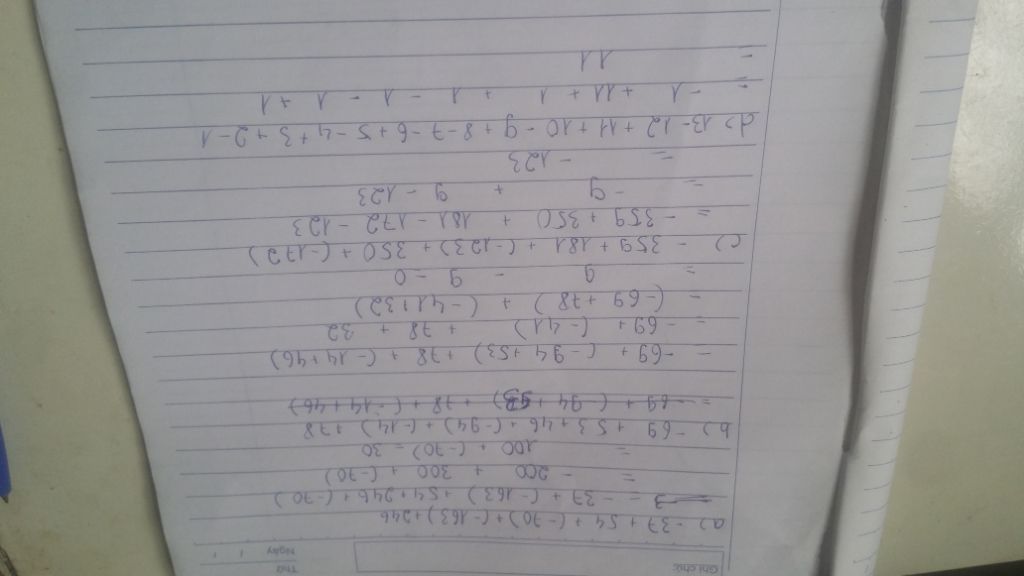 Ghi chú:
Thứ
Ngày
a) - 37 + 54 + (-70) + (-163) + 246
= - 37 + (-163) + 54 + 246 + (-70)
= - 200 + 300 + (-70)
= 100 + (-70) = 30
b) - 69 + 53 + 46 + (-94) + (-14) + 78
= - 69 + (- 94 + 53) + 78 + (- 14 + 46)
= - 69 + (- 94 + 53) + 78 + (- 14 + 46)
= - 69 + (- 41) + 78 + 32
= (- 69 + 78) + (- 41 + 32)
= 9 - 9 = 0
c) - 359 + 181 + (-123) + 350 + (-172)
= - 359 + 350 + 181 - 172 - 123
= - 9 + 9 - 123
= - 123
d) 13 - 12 + 11 + 10 - 9 + 8 - 7 - 6 + 5 - 4 + 3 + 2 - 1
= - 1 + 11 + 1 + 1 - 1 - 1 + 1
= 11